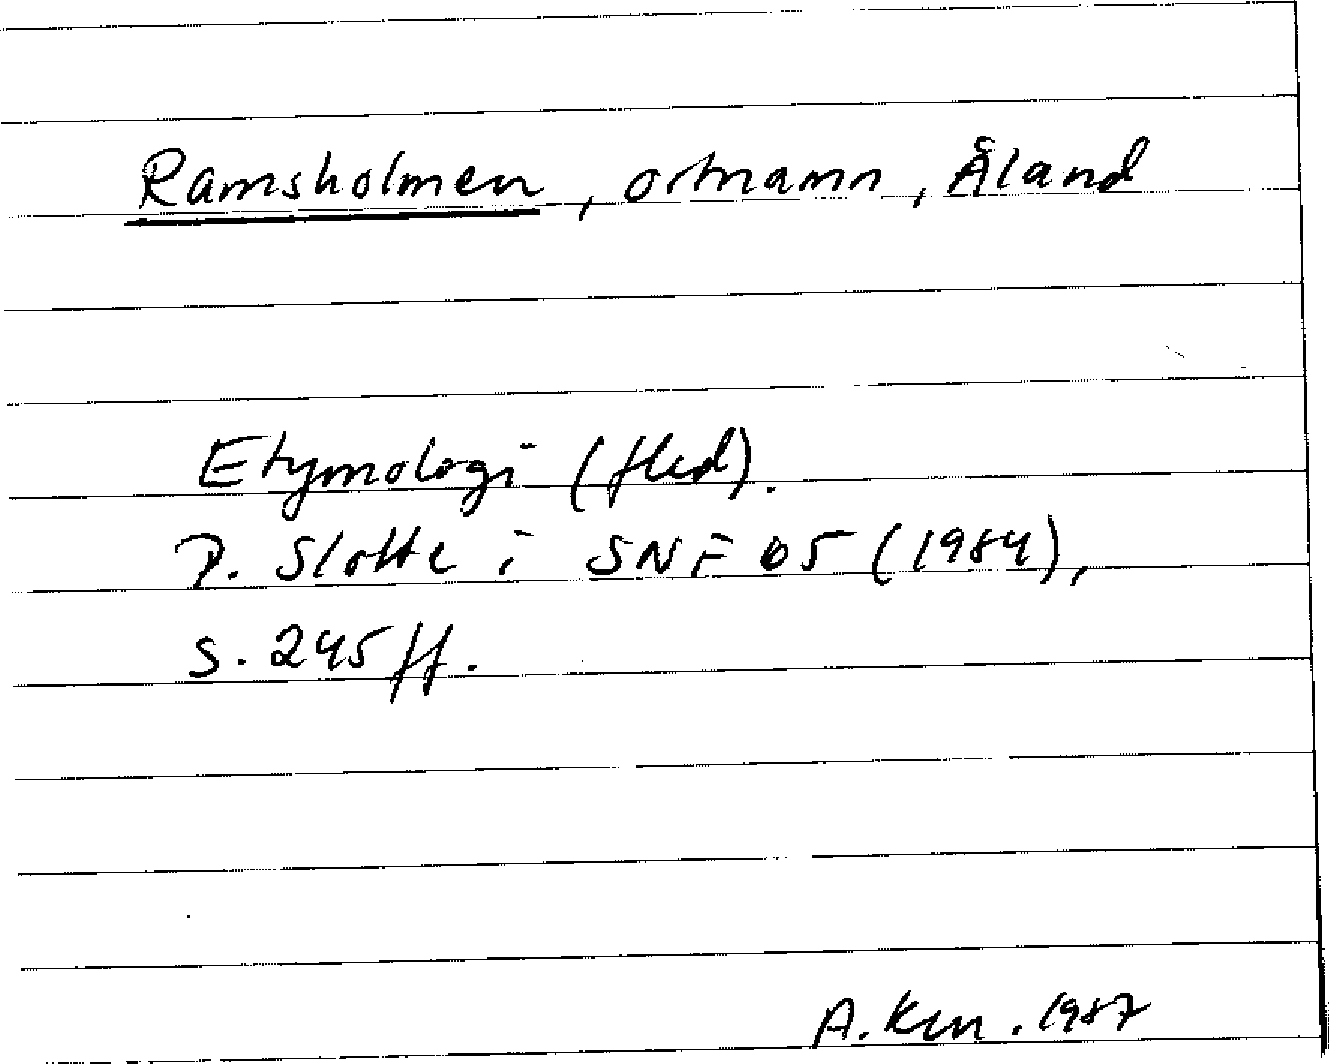 Ramsholmen, ortnamn, Åland
Etymologi (fled).
P. Slotte i SNF 65 (1984),
s. 245 ff.
A. 1987